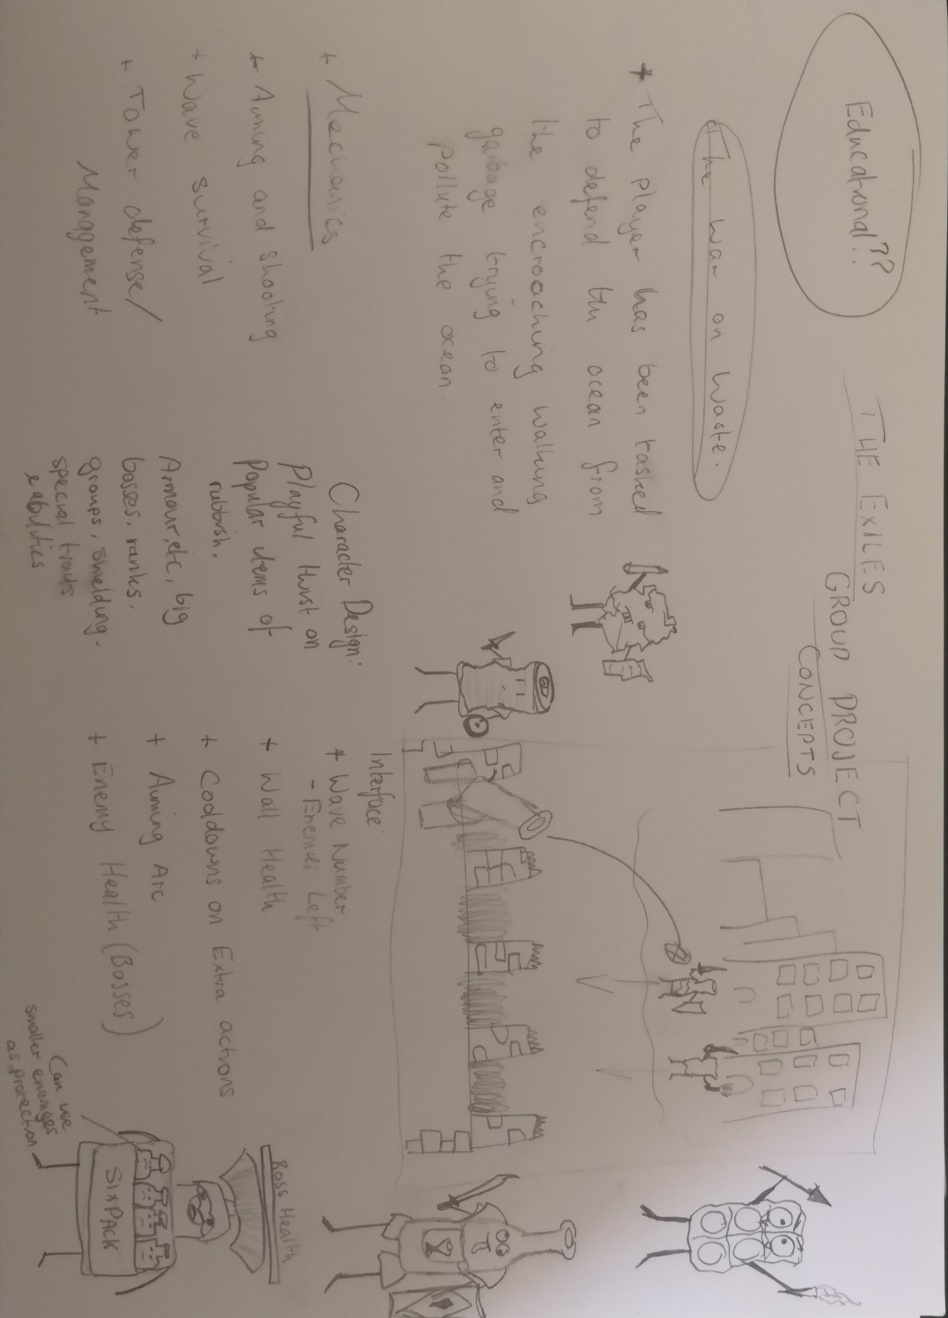 Educational??
THE EXILES
GROUP PROJECT
CONCEPTS
The war on waste.
* The player has been tasked
to defend the ocean from
the encroaching walking
garbage trying to enter and
pollute the ocean.
+ Mechanics
+ Aiming and shooting
+ Wave survival
+ Tower defense/
Management
Character Design:
Playful twist on
Popular items of
rubbish.
Armour, etc, big
bosses, ranks,
groups, shielding.
special traits
eabilities
Interface:
+ Wave Number
- Enemies Left
+ Wall Health
+ Cooldowns on Extra actions
+ Aiming Arc
+ Enemy Health (Bosses)
Boss Health
SIXPACK
Can use
smaller enemies
as protection